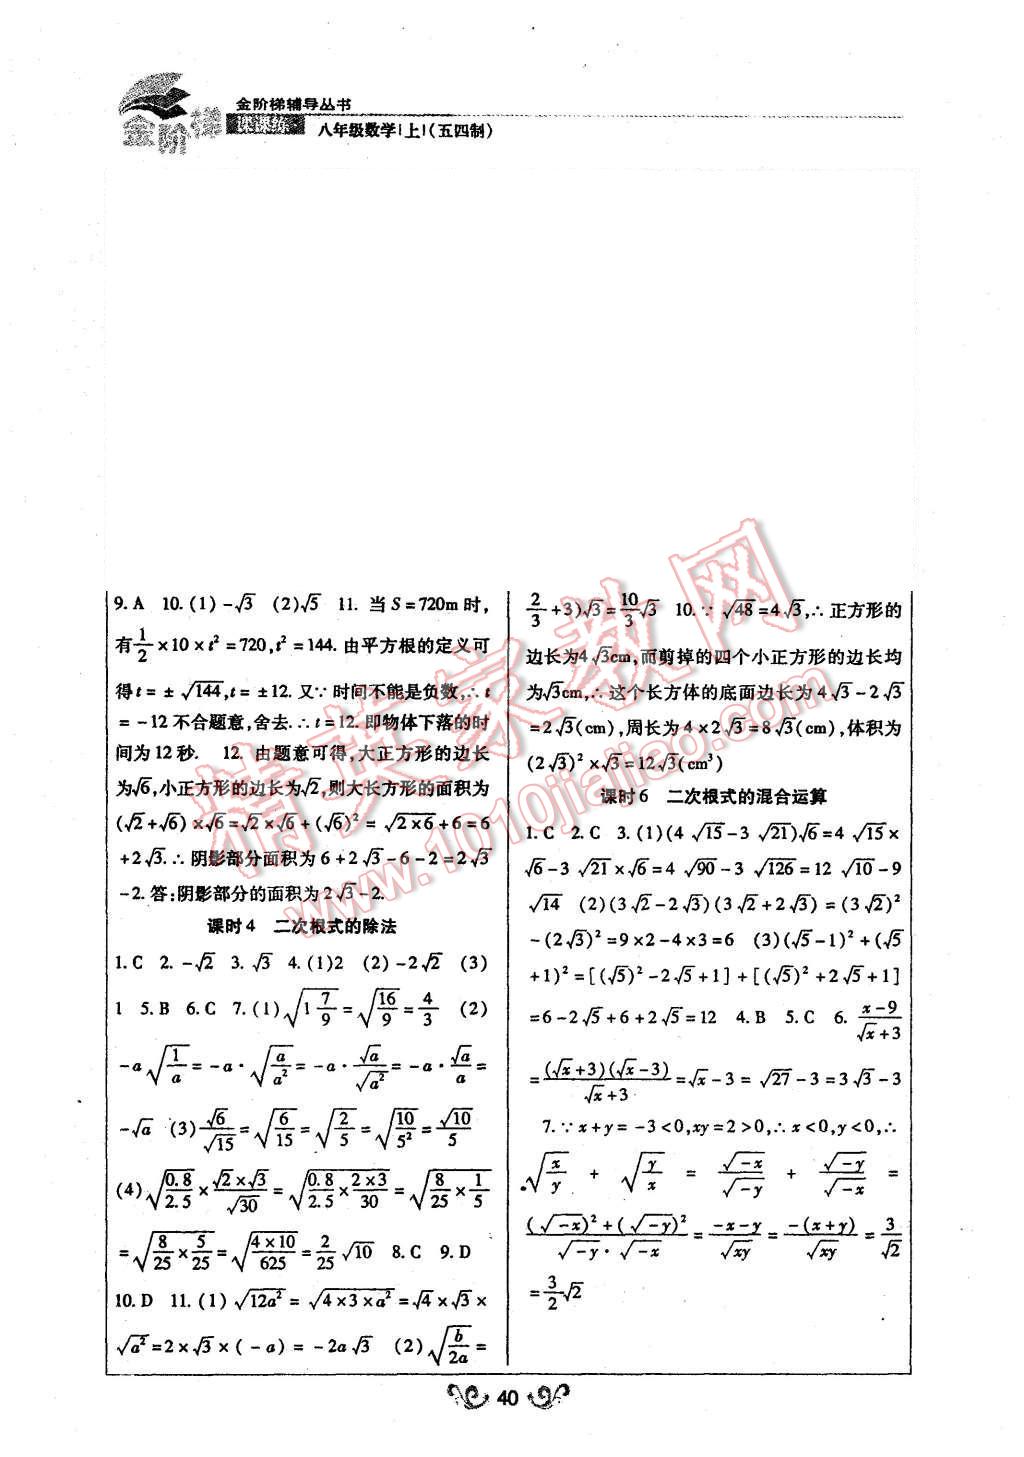 金阶梯辅导丛书
金阶梯 课课练 八年级数学|上|(五四制)
9. A 10. (1) -√3 (2)√5 11. 当 S = 720m 时,
有 1/2 × 10 × t² = 720, t² = 144. 由平方根的定义可
得 t = ± √144, t = ± 12. 又∵ 时间不能是负数, ∴ t
= -12 不合题意,舍去. ∴ t = 12. 即物体下落的时
间为 12 秒. 12. 由题意可得,大正方形的边长
为√6,小正方形的边长为√2,则大长方形的面积为
(√2+√6) × √6 = √2 × √6 + (√6)² = √(2×6) + 6 = 6
+ 2√3. ∴ 阴影部分面积为 6 + 2√3 - 6 - 2 = 2√3
- 2. 答:阴影部分的面积为 2√3 - 2.
课时 4 二次根式的除法
1. C 2. -√2 3. √3 4. (1)2 (2) -2√2 (3)
1 5. B 6. C 7. (1) √(1 7/9) = √(16/9) = 4/3 (2)
-a√(1/a) = -a · √(a/a²) = -a · √a/√a² = -a · √a/a =
-√a (3) √6/√15 = √(6/15) = √(2/5) = √(10/5²) = √10/5
(4) √(0.8/2.5) × (√2×√3)/√30 = √(0.8/2.5 × (2×3)/30) = √(8/25 × 1/5)
= √(8/25 × 5/25) = √((4×10)/625) = 2/25 √10 8. C 9. D
10. D 11. (1) √(12a²) = √(4×3×a²) = √4 × √3 ×
√a² = 2 × √3 × ( -a) = -2a√3 (2) √(b/2a) =
2/3 + 3)√3 = 10/3 √3 10. ∵ √48 = 4√3, ∴ 正方形的
边长为4√3cm,而剪掉的四个小正方形的边长均
为√3cm, ∴ 这个长方体的底面边长为 4√3 - 2√3
= 2√3(cm),周长为 4 × 2√3 = 8√3(cm),体积为
(2√3)² × √3 = 12√3(cm³)
课时 6 二次根式的混合运算
1. C 2. C 3. (1)(4√15 - 3√21)√6 = 4√15 ×
√6 - 3√21 × √6 = 4√90 - 3√126 = 12√10 - 9
√14 (2)(3√2 - 2√3)(3√2 + 2√3) = (3√2)²
- (2√3)² = 9 × 2 - 4 × 3 = 6 (3)(√5 - 1)² + (√5
+ 1)² = [(√5)² - 2√5 + 1] + [(√5)² + 2√5 + 1]
= 6 - 2√5 + 6 + 2√5 = 12 4. B 5. C 6. (x-9)/(√x+3)
= (√x+3)(√x-3)/(√x+3) = √x - 3 = √27 - 3 = 3√3 - 3
7. ∵ x + y = -3 < 0, xy = 2 > 0, ∴ x < 0, y < 0, ∴
√(x/y) + √(y/x) = √(-x)/√(-y) + √(-y)/√(-x) =
((√(-x))² + (√(-y))²)/(√(-y) · √(-x)) = (-x-y)/√(xy) = -(x+y)/√(xy) = 3/√2
= 3/2 √2
40
精英家教网
www.1010jiajiao.com